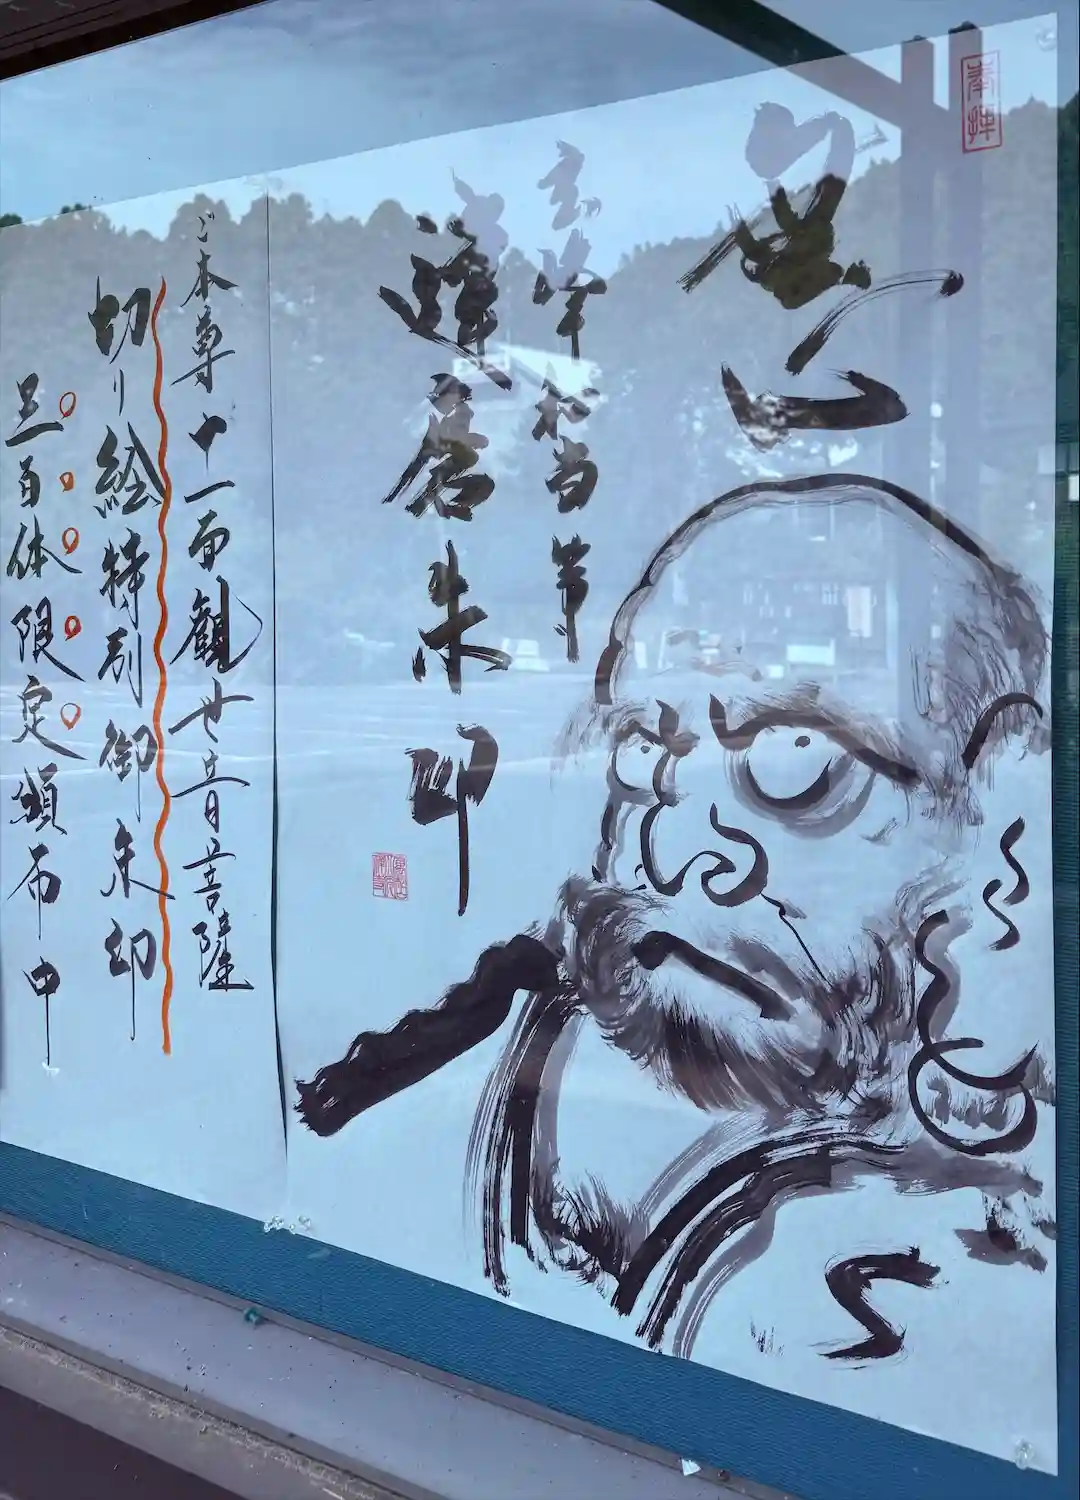 奉拝
無心
玄峰和尚筆
達磨朱印
ご本尊十一面観世音菩薩
切り絵特別御朱印
三百体限定頒布中